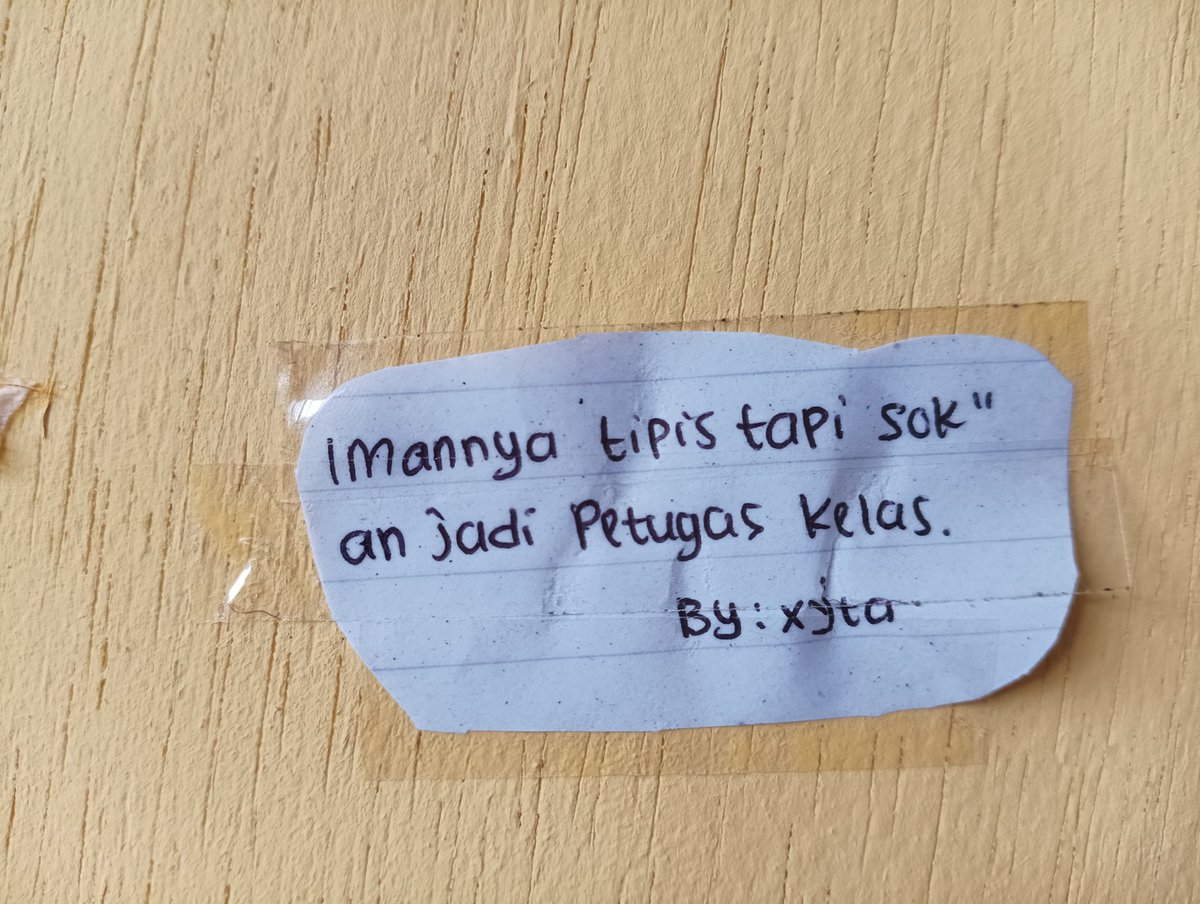 imannya tipis tapi sok"
an jadi Petugas kelas.
By: xyta